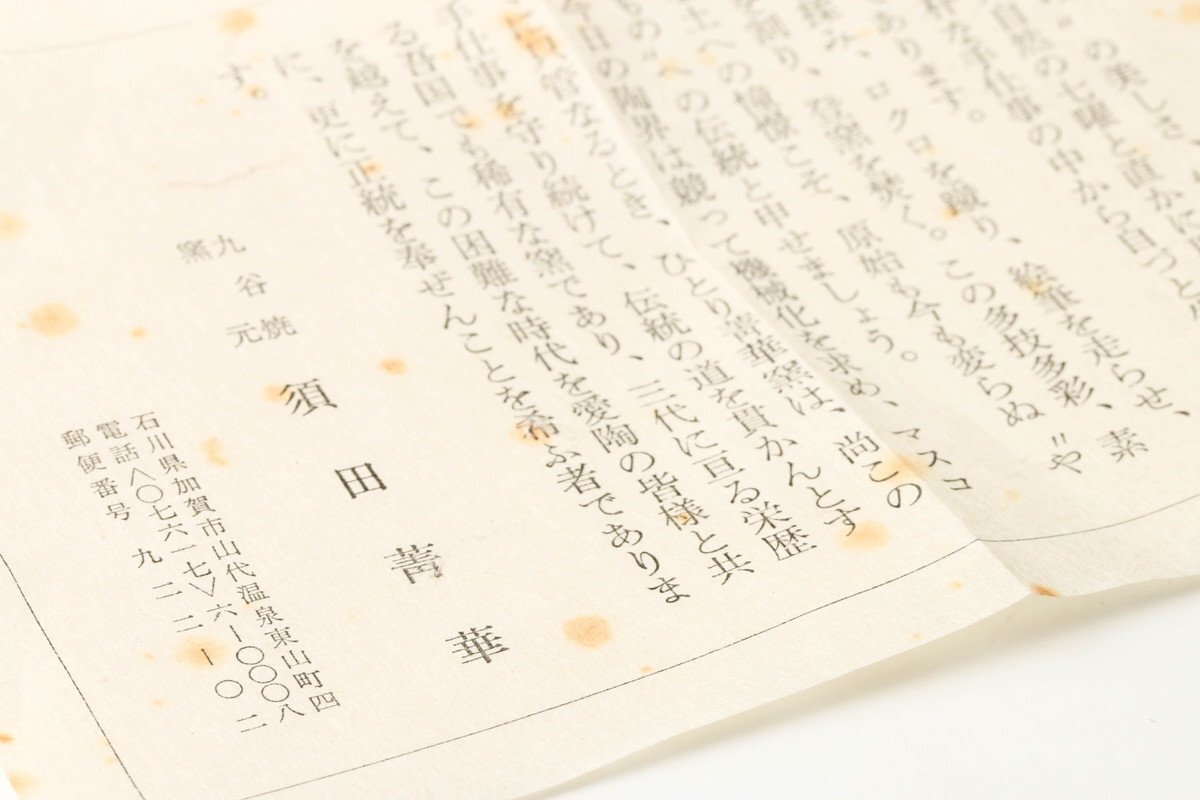 の美しさ
自然の七曜と直かに
朴な手仕事の中から自つと
であります。
揉み、ロクロを蹴り、絵筆を走らせ、
を割り、谷窯を焚く。この多技多彩、素
土への憧憬こそ、原始も今も変らぬ〃や
もの〃への伝統と申せましょう。
今日の陶界は競って機械化を求め、マスコ
管なるとき、ひとり菁華窯は、尚この
手仕事を守り続けて、伝統の道を貫かんとす
る吾国でも稀有な窯であり、三代に亘る栄歴
を越えて、この困難な時代を愛陶の皆様と共
に、更に正統を奉せんことを希ふ者でありま
す。
九谷焼
窯元
須田菁華
石川県加賀市山代温泉東山町四
電話〈〇七六一七〉六ー〇〇〇八
郵便番号 九二二ー〇二